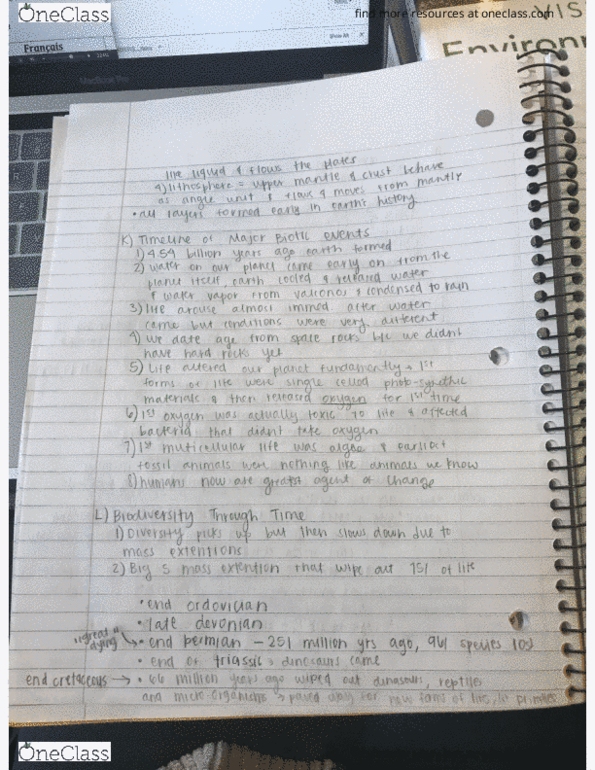 OneClass
find more resources at oneclass.com
Français
VIS
Environ
like liquid & flows the plates
4) lithosphere = upper mantle & crust behave
as angle unit & flows & moves from mantly
• all layers formed early in earth's history
K) Timeline of Major Biotic events
1) 4.54 billion years ago earth formed
2) water on our planet came early on from the
planet itself, earth cooled & released water
& water vapor from valcronos & condensed to rain
3) life arouse almost immed. after water
came but conditions were very different
4) we date age from space rocks b/c we didn't
have hard rocks yet
5) Life altered our planet fundamently & 1st
forms of life were single celled photo-synthic
materials & then released oxygen for 1st time
6) 1st oxygen was actually toxic to life & affected
bacteria that didn't take oxygen
7) 1st muticellular life was algae & earliest
fossil animals were nothing like animals we know
8) humans now are gratst agent of change
L) Biodiversity Through Time
1) Diversity picks up but then slows down due to
mass extentions
2) Big 5 mass extention that wipe out 75% of life
• end ordovician
• late devonian
"great dying" → • end permian - 251 million yrs ago, 96% species lost
• end of triassic → dinosaurs came
end cretaceous → • 66 million years ago wiped out dinasours, reptiles
and micro-organisims → paved way for new forms of life,
OneClass